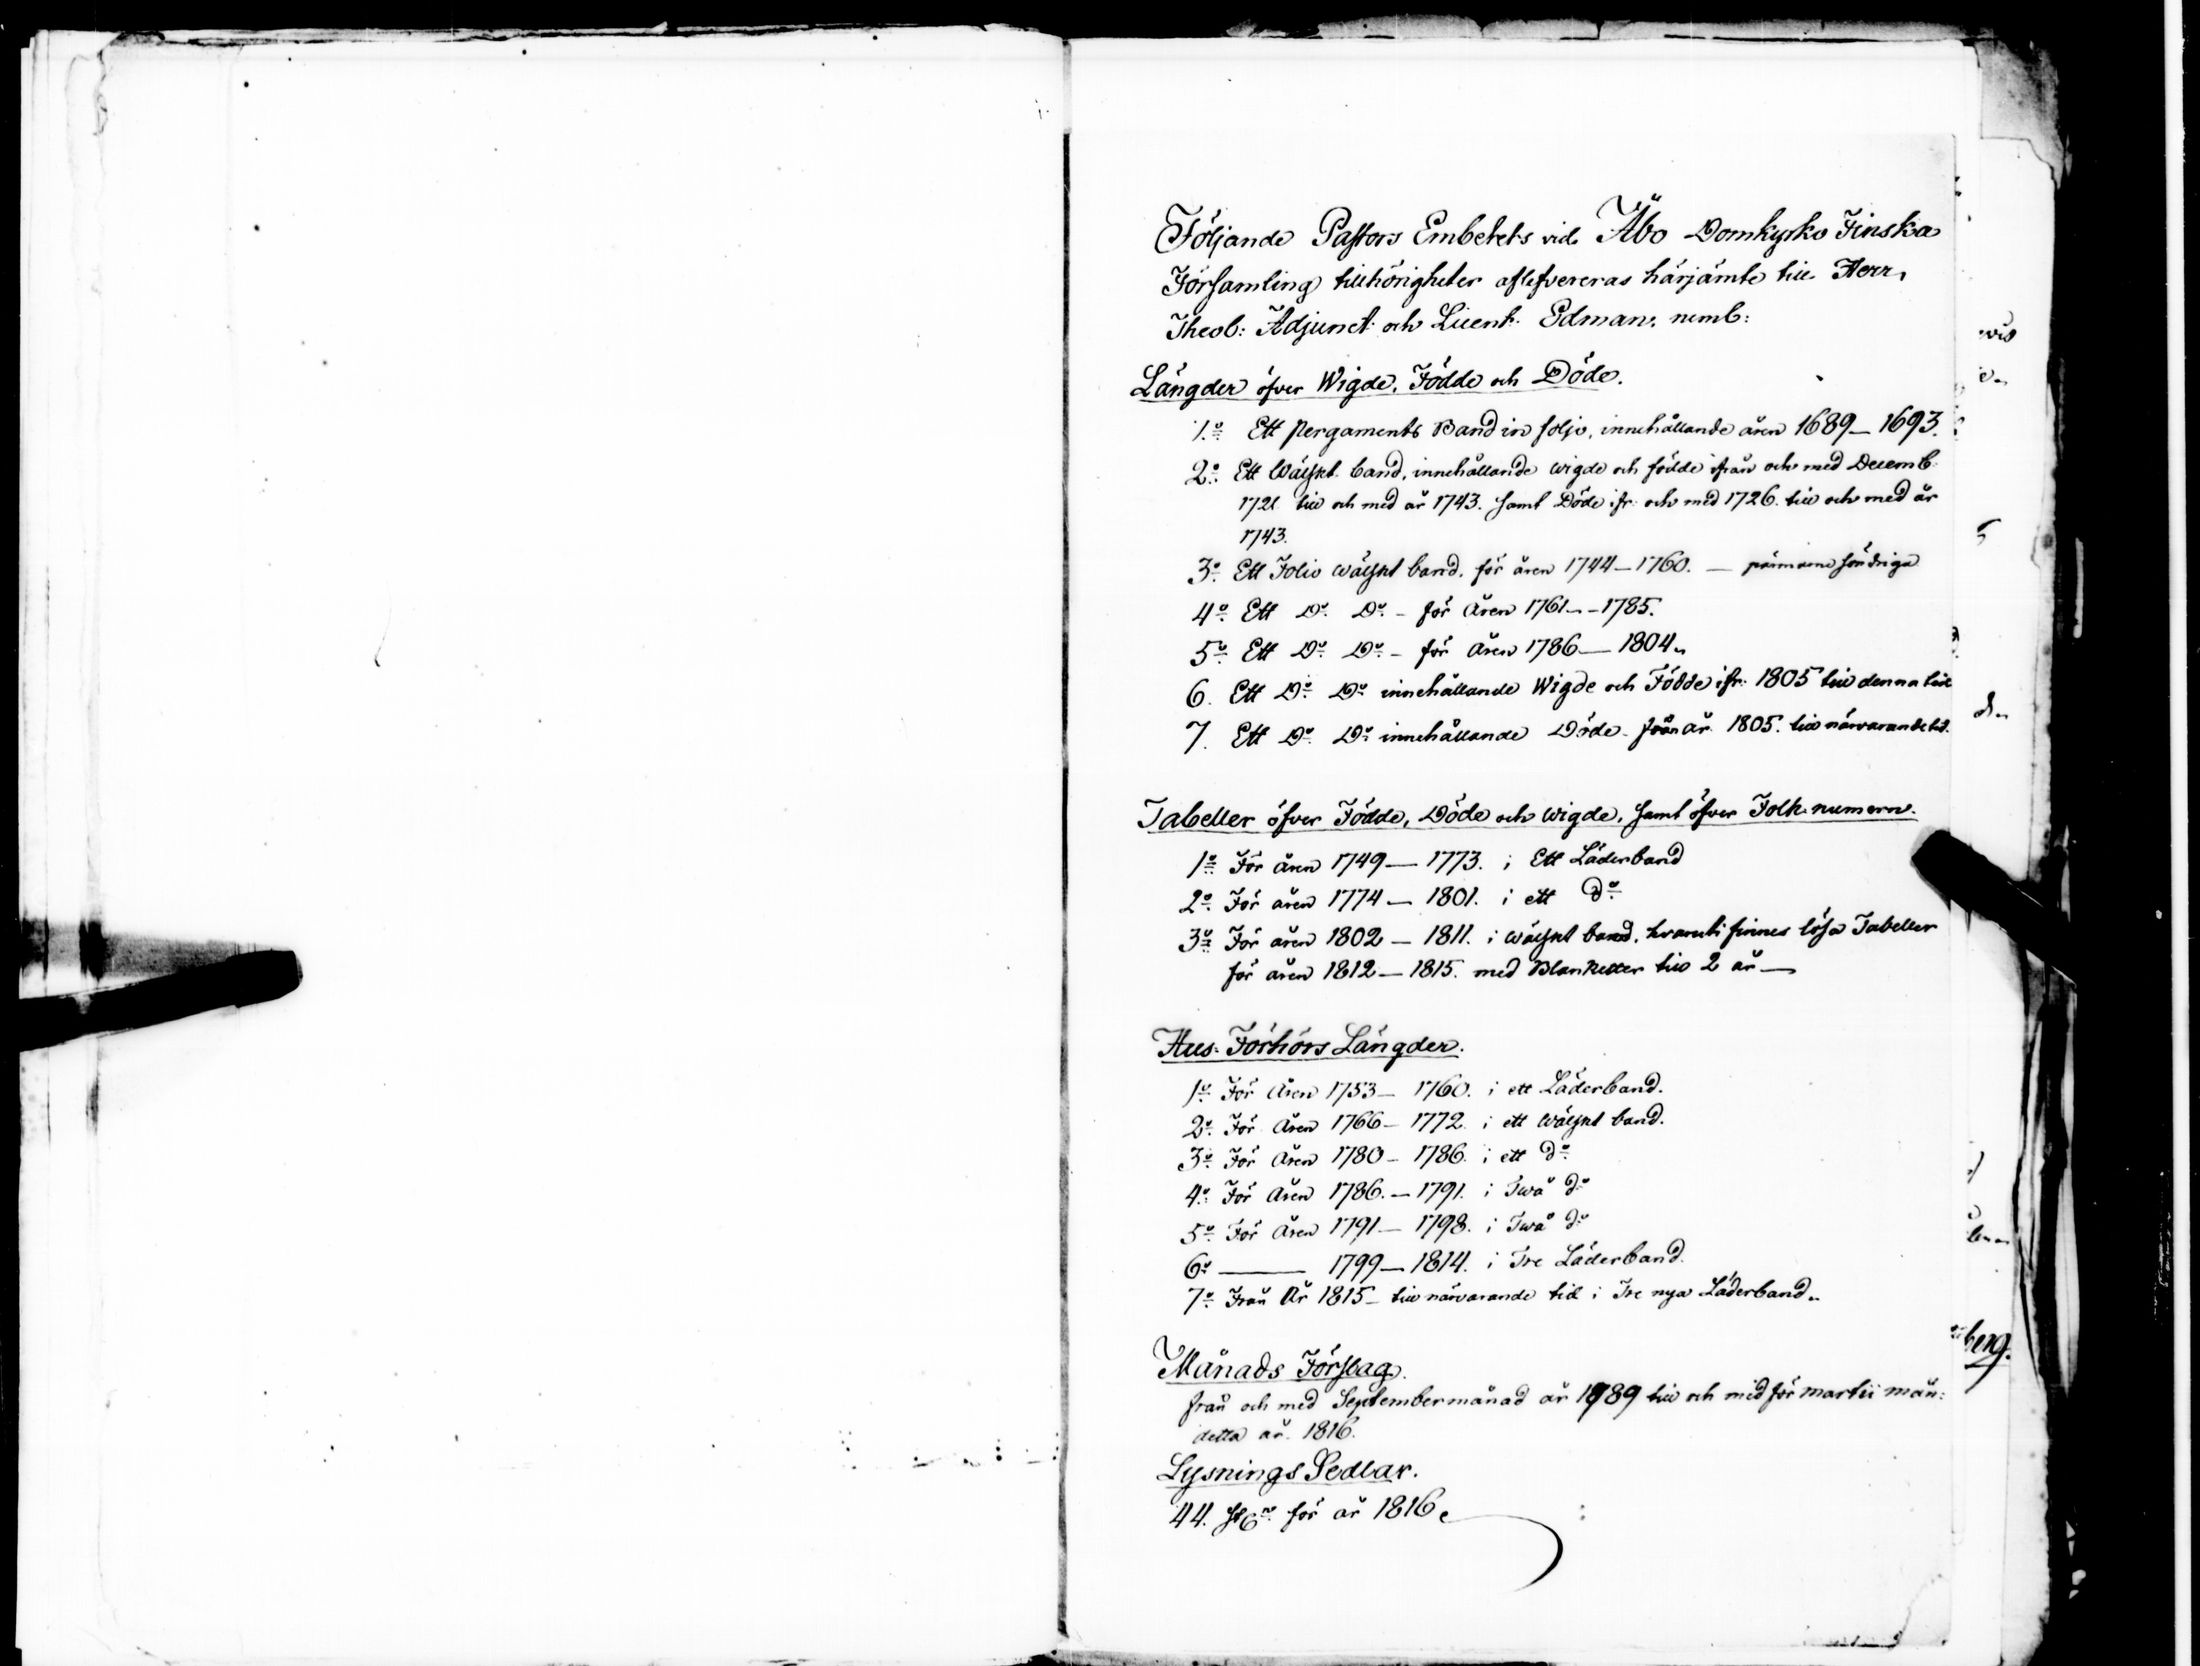 Följande Pastors Embetets vid Åbo Domkyrko Finska
Församling tillhörigheter aflefvereras härjämte till Herr
Theol: Adjunct och Licent. Edman, neml:
Längder öfver Wigde, Födde och Döde.
1.o Ett Pergaments Band in foljo, innehållande åren 1689 – 1693.
2o. Ett Wälskt band, innehållande wigde och födde ifrån och med Decemb:
1721 till och med år 1743. samt Döde ifr: och med 1726. till och med år
1743.
3o. Ett Folio wälskt band, för åren 1744 – 1760. – pärmarne söndriga
4o. Ett Do. Do. – för Åren 1761 – 1785.
5o. Ett Do. Do. – för Åren 1786 – 1804.
6. Ett Do. Do. innehållande Wigde och Födde ifr: 1805 till denna tid
7. Ett Do. Do. innehållande Döde från år 1805. till närvarande tid.
Tabeller öfver Födde, Döde och wigde, samt öfver Folk numern.
1o. För åren 1749 – 1773. i Ett Läderband
2o. För åren 1774 – 1801. i ett do.
3o. För åren 1802 – 1811. i wälskt band, hvaruti finnes lösa Tabeller
för åren 1812 – 1815. med Blanketter till 2 år –
Hus-Förhörs Längder.
1o. För Åren 1753 – 1760. i ett Läderband.
2o. För Åren 1766 – 1772. i ett wälskt band.
3o. För Åren 1780 – 1786. i ett do.
4o. För Åren 1786. – 1791. i Twå do
5o. För Åren 1791 – 1798. i Twå do
6o. ––– 1799 – 1814. i Tre Läderband.
7o. Från År 1815 – till närvarande tid i Tre nya Läderband.
Månads Förslag.
från och med Septembermånad år 1789 till och med för martii mån:
detta år 1816.
Lysnings Sedlar.
44. för år 1816.
berg.